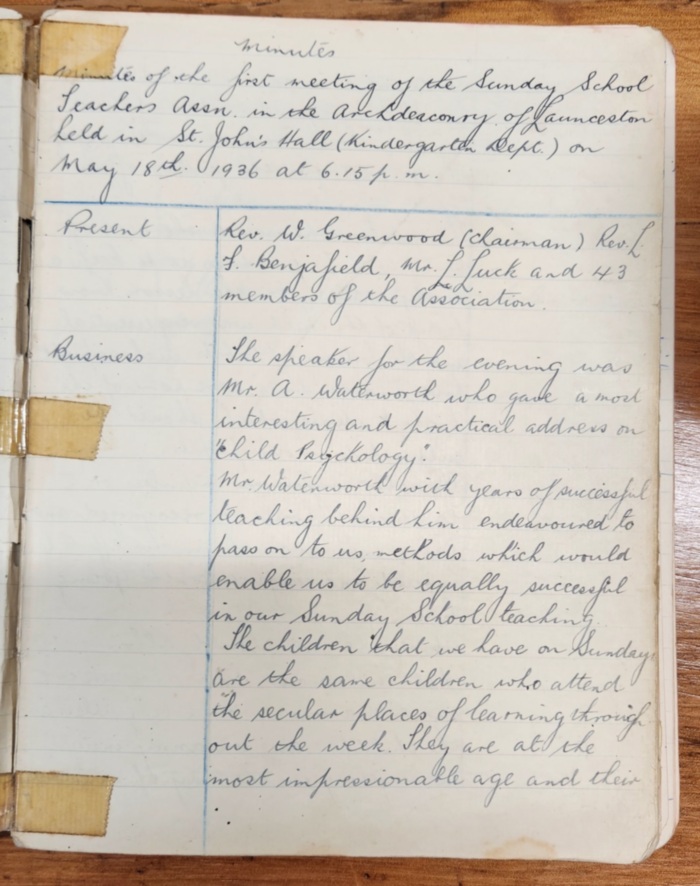 Minutes
Minutes of the first meeting of the Sunday School
Teachers Assn. in the Archdeaconry of Launceston
held in St. John's Hall (Kindergarten Dept.) on
May 18th. 1936 at 6.15 p.m.
Present
Rev. W. Greenwood (Chairman) Rev. L.
F. Benjafield, Mr. L. Luck and 43
members of the Association.
Business
The speaker for the evening was
Mr. A. Waterworth who gave a most
interesting and practical address on
"Child Psychology".
Mr. Waterworth with years of successful
teaching behind him endeavoured to
pass on to us, methods which would
enable us to be equally successful
in our Sunday School teaching.
The children that we have on Sundays
are the same children who attend
the secular places of learning through
out the week. They are at the
most impressionable age and their